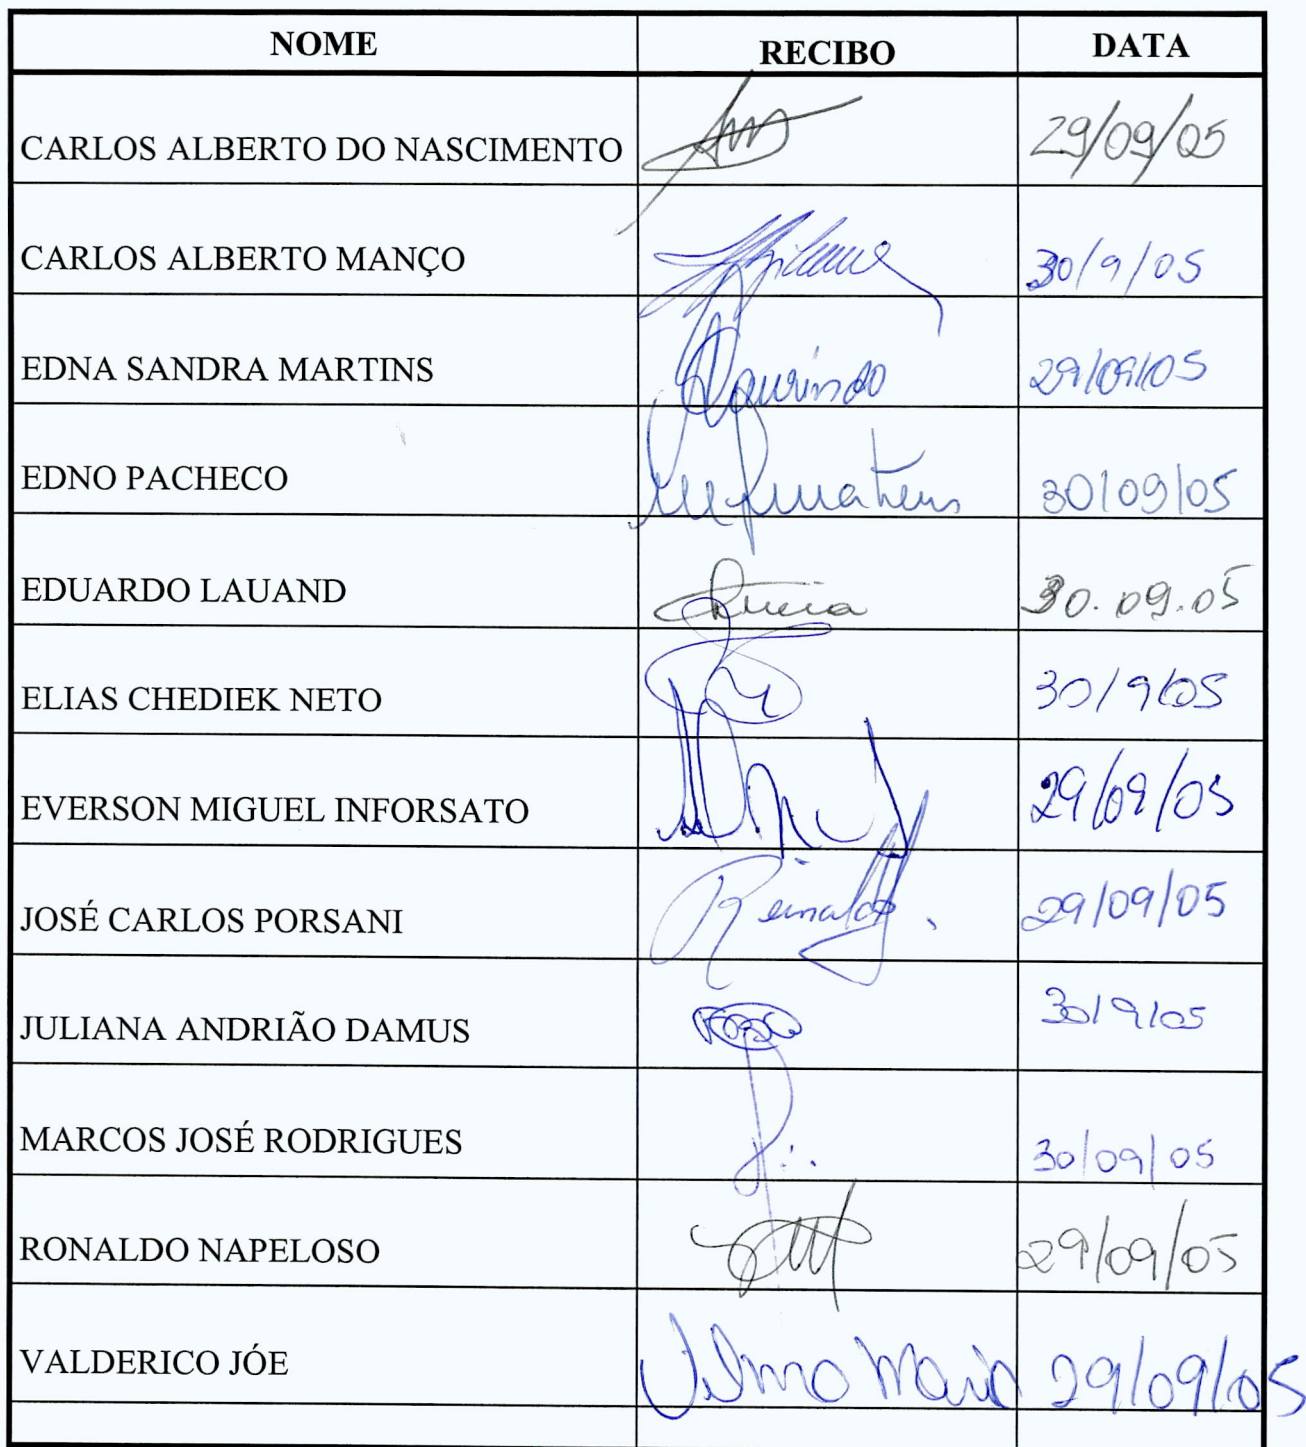 NOME RECIBO DATA
CARLOS ALBERTO DO NASCIMENTO 29/09/05
CARLOS ALBERTO MANÇO 30/9/05
EDNA SANDRA MARTINS 29/09/05
EDNO PACHECO 30/09/05
EDUARDO LAUAND 30.09.05
ELIAS CHEDIEK NETO 30/9/05
EVERSON MIGUEL INFORSATO 29/09/05
JOSÉ CARLOS PORSANI Reinaldo 29/09/05
JULIANA ANDRIÃO DAMUS 30/9/05
MARCOS JOSÉ RODRIGUES 30/09/05
RONALDO NAPELOSO 29/09/05
VALDERICO JÓE 29/09/05